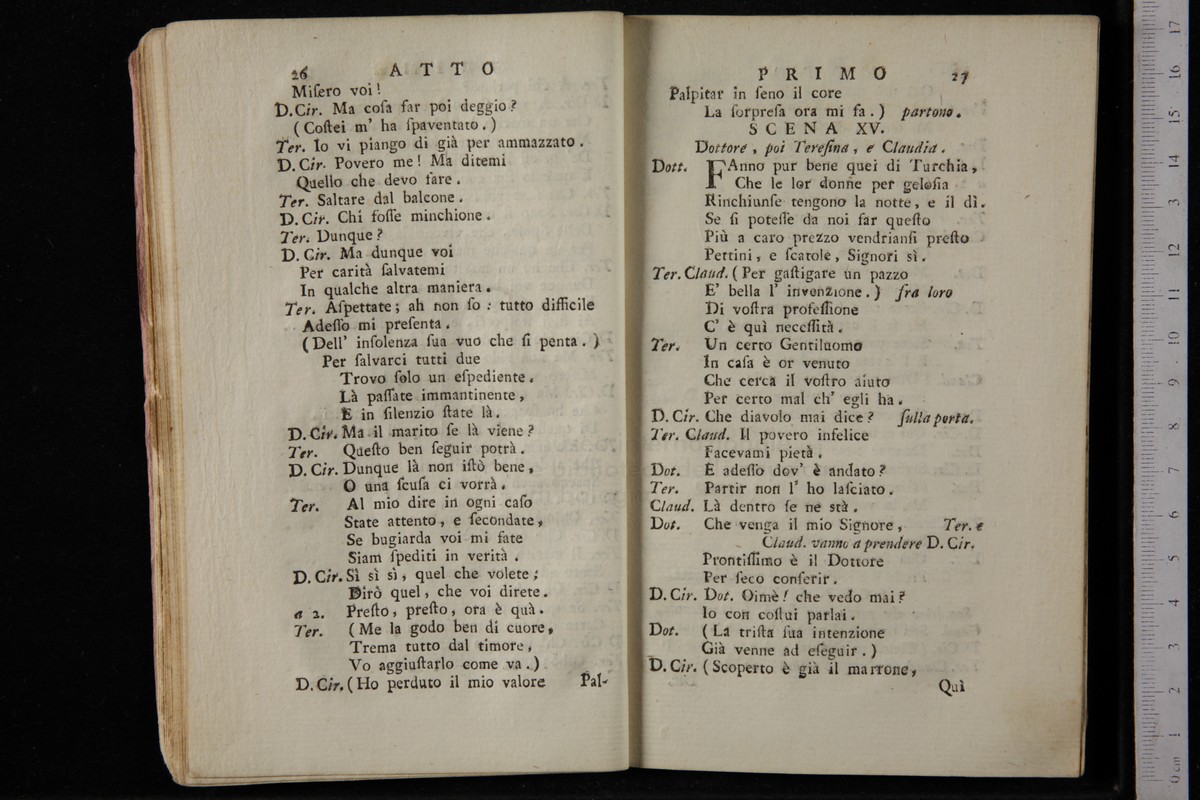 26 ATTO
Miſero voi!
D.Cir. Ma coſa far poi deggio?
(Coſtei m' ha ſpaventato.)
Ter. Io vi piango di già per ammazzato.
D. Cir. Povero me! Ma ditemi
Quello che devo fare.
Ter. Saltare dal balcone.
D. Cir. Chi foſſe minchione.
Ter. Dunque?
D. Cir. Ma dunque voi
Per carità ſalvatemi
In qualche altra maniera.
Ter. Aſpettate; ah non ſo: tutto difficile
Adeſſo mi preſenta.
(Dell' inſolenza ſua vuo che ſi penta.)
Per ſalvarci tutti due
Trovo ſolo un eſpediente.
Là paſſate immantinente,
E in ſilenzio ſtate là.
D. Cir. Ma il marito ſe là viene?
Ter. Queſto ben ſeguir potrà.
D. Cir. Dunque là non iſtò bene,
O una ſcuſa ci vorrà.
Ter. Al mio dire in ogni caſo
State attento, e ſecondate,
Se bugiarda voi mi fate
Siam ſpediti in verità.
D. Cir. Sì sì sì, quel che volete;
Dirò quel, che voi direte.
a 2. Preſto, preſto, ora è quà.
Ter. (Me la godo ben di cuore,
Trema tutto dal timore,
Vo aggiuſtarlo come va.)
D. Cir. (Ho perduto il mio valore
Pal-
PRIMO 27
Palpitar in ſeno il core
La ſorpreſa ora mi fa.) partono.
SCENA XV.
Dottore, poi Tereſina, e Claudia.
Dott. FAnno pur bene quei di Turchia,
Che le lor donne per geloſia
Rinchiunſe tengono la notte, e il dì.
Se ſi poteſſe da noi far queſto
Più a caro prezzo vendrianſi preſto
Pettini, e ſcatole, Signori sì.
Ter. Claud. (Per gaſtigare un pazzo
E' bella l' invenzione.) fra loro
Di voſtra profeſſione
C' è quì neceſſità.
Ter. Un certo Gentiluomo
In caſa è or venuto
Che cerca il voſtro aiuto
Per certo mal ch' egli ha.
D. Cir. Che diavolo mai dice? ſulla porta.
Ter. Claud. Il povero infelice
Facevami pietà.
Dot. E adeſſo dov' è andato?
Ter. Partir non l' ho laſciato.
Claud. Là dentro ſe ne stà.
Dot. Che venga il mio Signore, Ter. e
Claud. vanno a prendere D. Cir.
Prontiſſimo è il Dottore
Per ſeco conferir.
D. Cir. Dot. Oimè! che vedo mai?
Io con coſtui parlai.
Dot. (La triſta ſua intenzione
Già venne ad eſeguir.)
D. Cir. (Scoperto è già il marrone,
Quì
0 cm 1 2 3 4 5 6 7 8 9 10 11 12 13 14 15 16 17